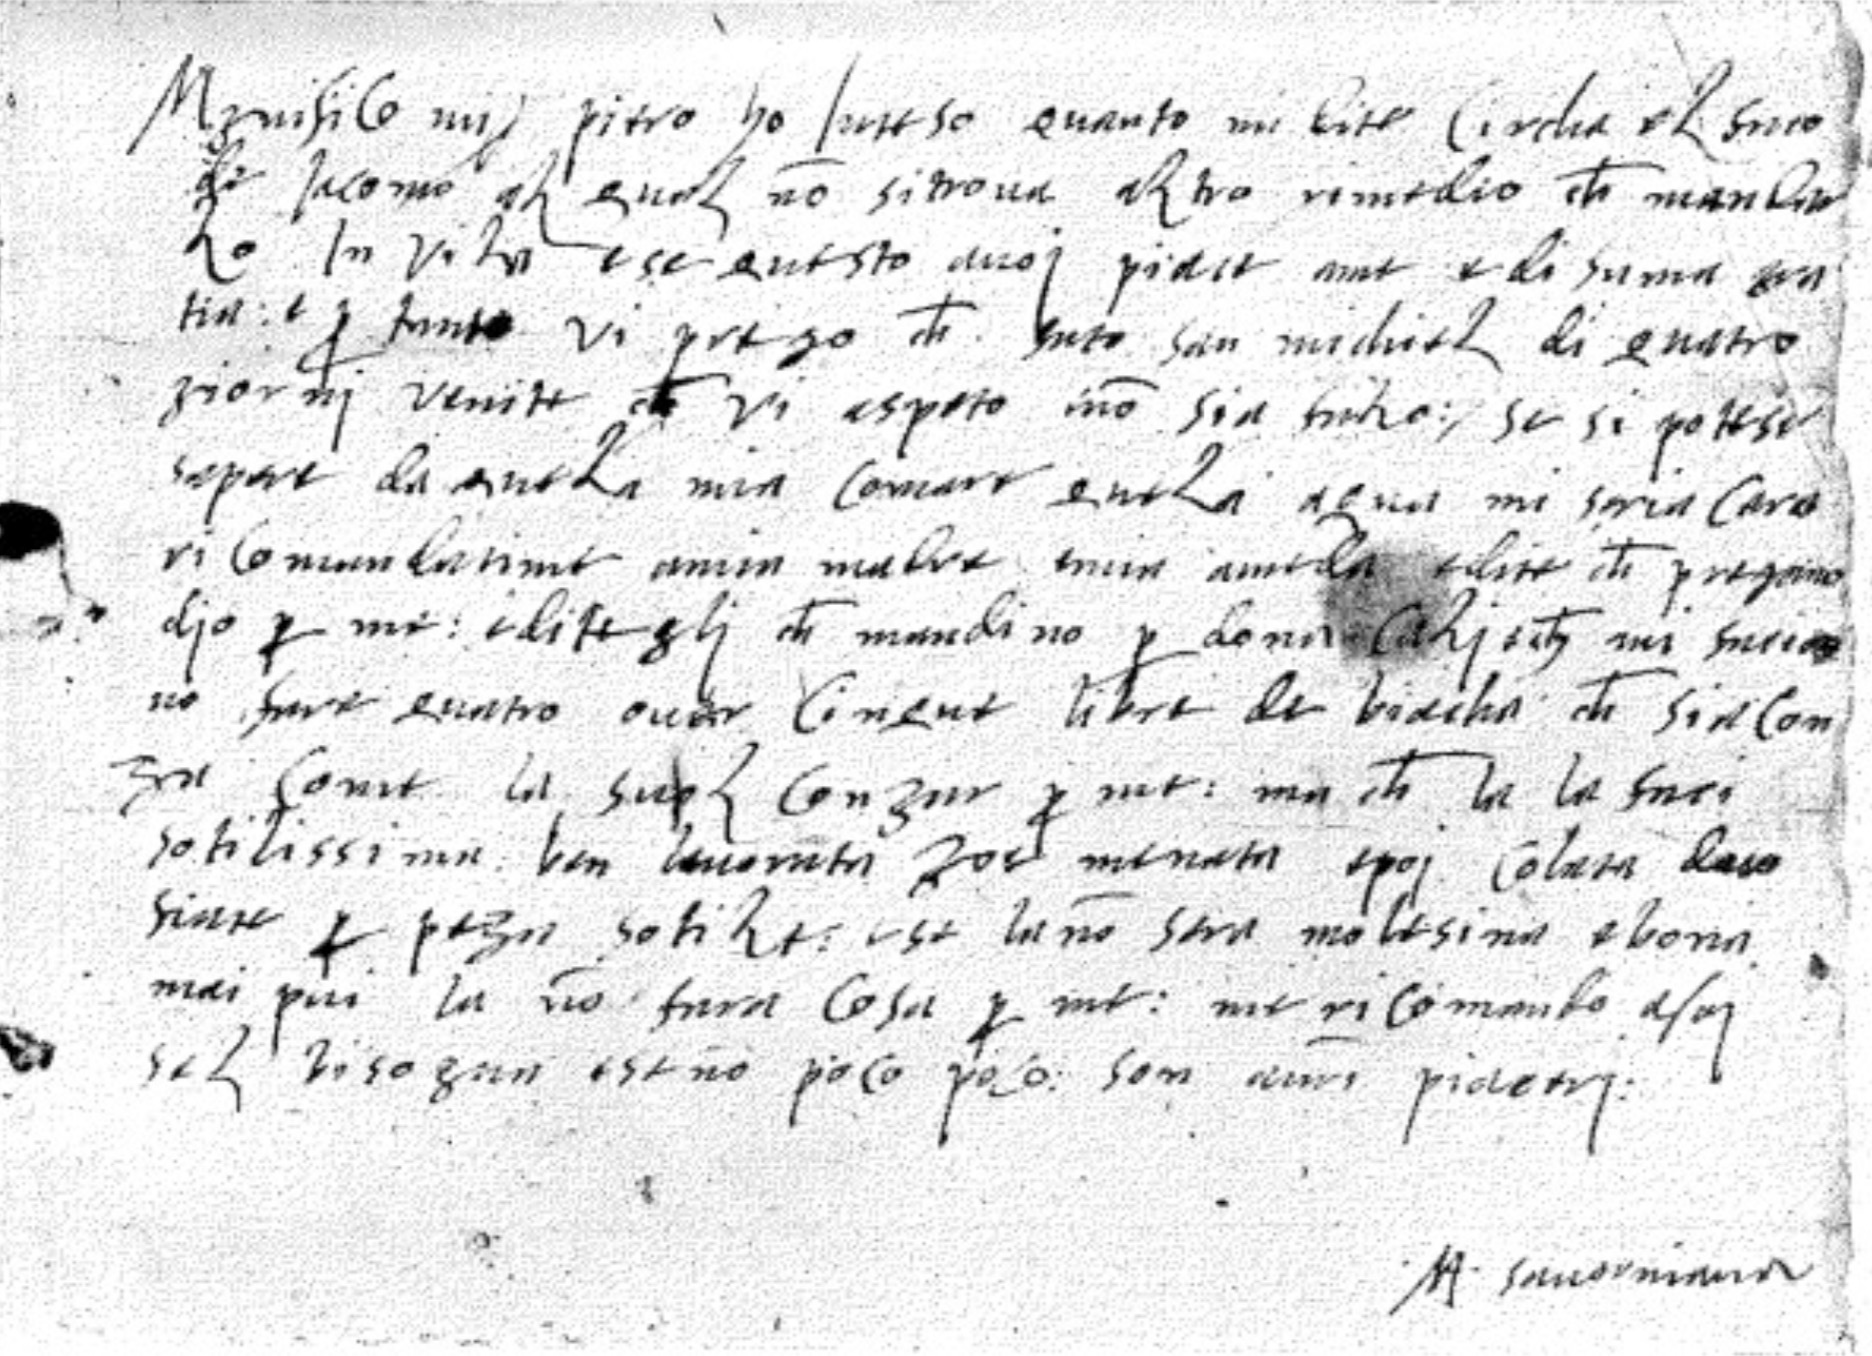 Magnifico miss pietro ho Inteso quanto mi dite Circha el fuco
de Jacomo al qual nō si trova altro rimedio ch mandar
lo In vila e se questo a voj piace a me e di suma gra
tia: e p tanto vi prego ch fato san michiel di quatro
giornj venite ch vi aspeto i nō sia falo: se si potese
sapere da quela mia Comare quela aqua mi saria Cara
ri Comandatime a mia madre e mia ameda e dite ch pregano
djo p me: e diteglj ch mandi no p dona mi facia
no fare quatro over Cinque libre de biacha ch sia Con
za Come la suol Conzar p me: ma ch la la faci
sotilissima ben lavorata zoe menata e poj Colata
p peza sotile: e se la nō sera molesina e bona
mai piui la nō fara Cosa p me: me ri Comando asaj
sel bisogna e se nō poco poco: son a vri piacerj:
M savorniana